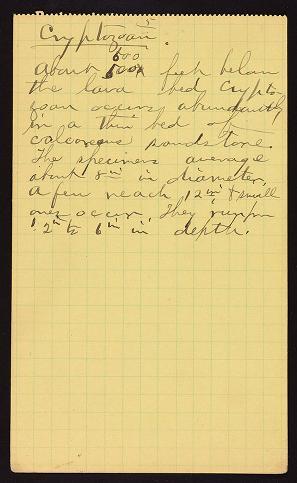 5
Cryptozoan.
600
About 500 feet below
the lava bed crypto-
zoan occurs abundantly
in a thin bed of
calcareous sandstone.
The specimens average
about 8 in in diameter,
a few reach 12 in & small
ones occur. They run from
2 in to 6 in in depth.